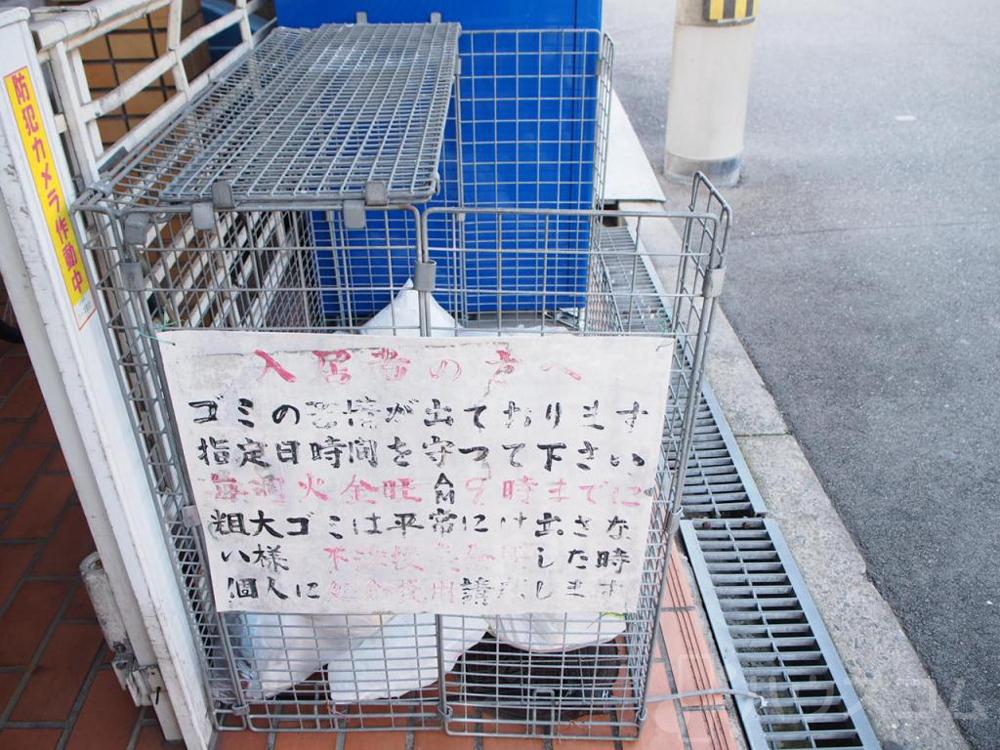 防犯カメラ作動中
入居者の方へ
ゴミの苦情が出ております
指定日時間を守って下さい
毎週火金曜AM9時までに
粗大ゴミは平常には出さな
い様 不法投 した時
個人に 費用請 します